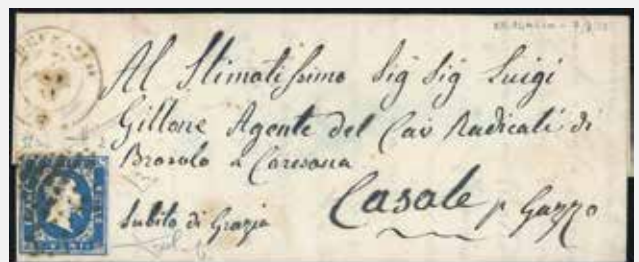 Al Stimatissimo Sig Sig Luigi
Gillone Agente del Cav Radicati di
Brosolo a Caresana
Casale p Gazzo
Subito di Grazia